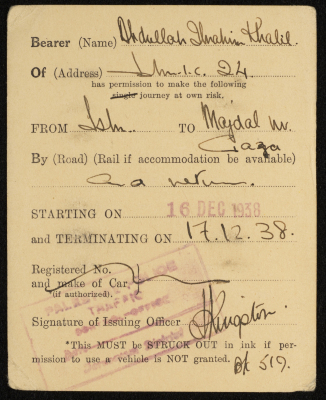 Bearer (Name) Abdullah Ibrahim Khalil.
Of (Address) 24
has permission to make the following
single journey at own risk.
FROM Ism. TO Majdal nr.
Gaza
By (Road) (Rail if accommodation be available)
and return.
STARTING ON 16 DEC 1938
and TERMINATING ON 17.12.38.
Registered No.
and make of Car.
(if authorized).
PALESTINE POLICE
TRAFFIC
Signature of Issuing Officer
*This MUST BE STRUCK OUT in ink if per-
mission to use a vehicle is NOT granted.
519.